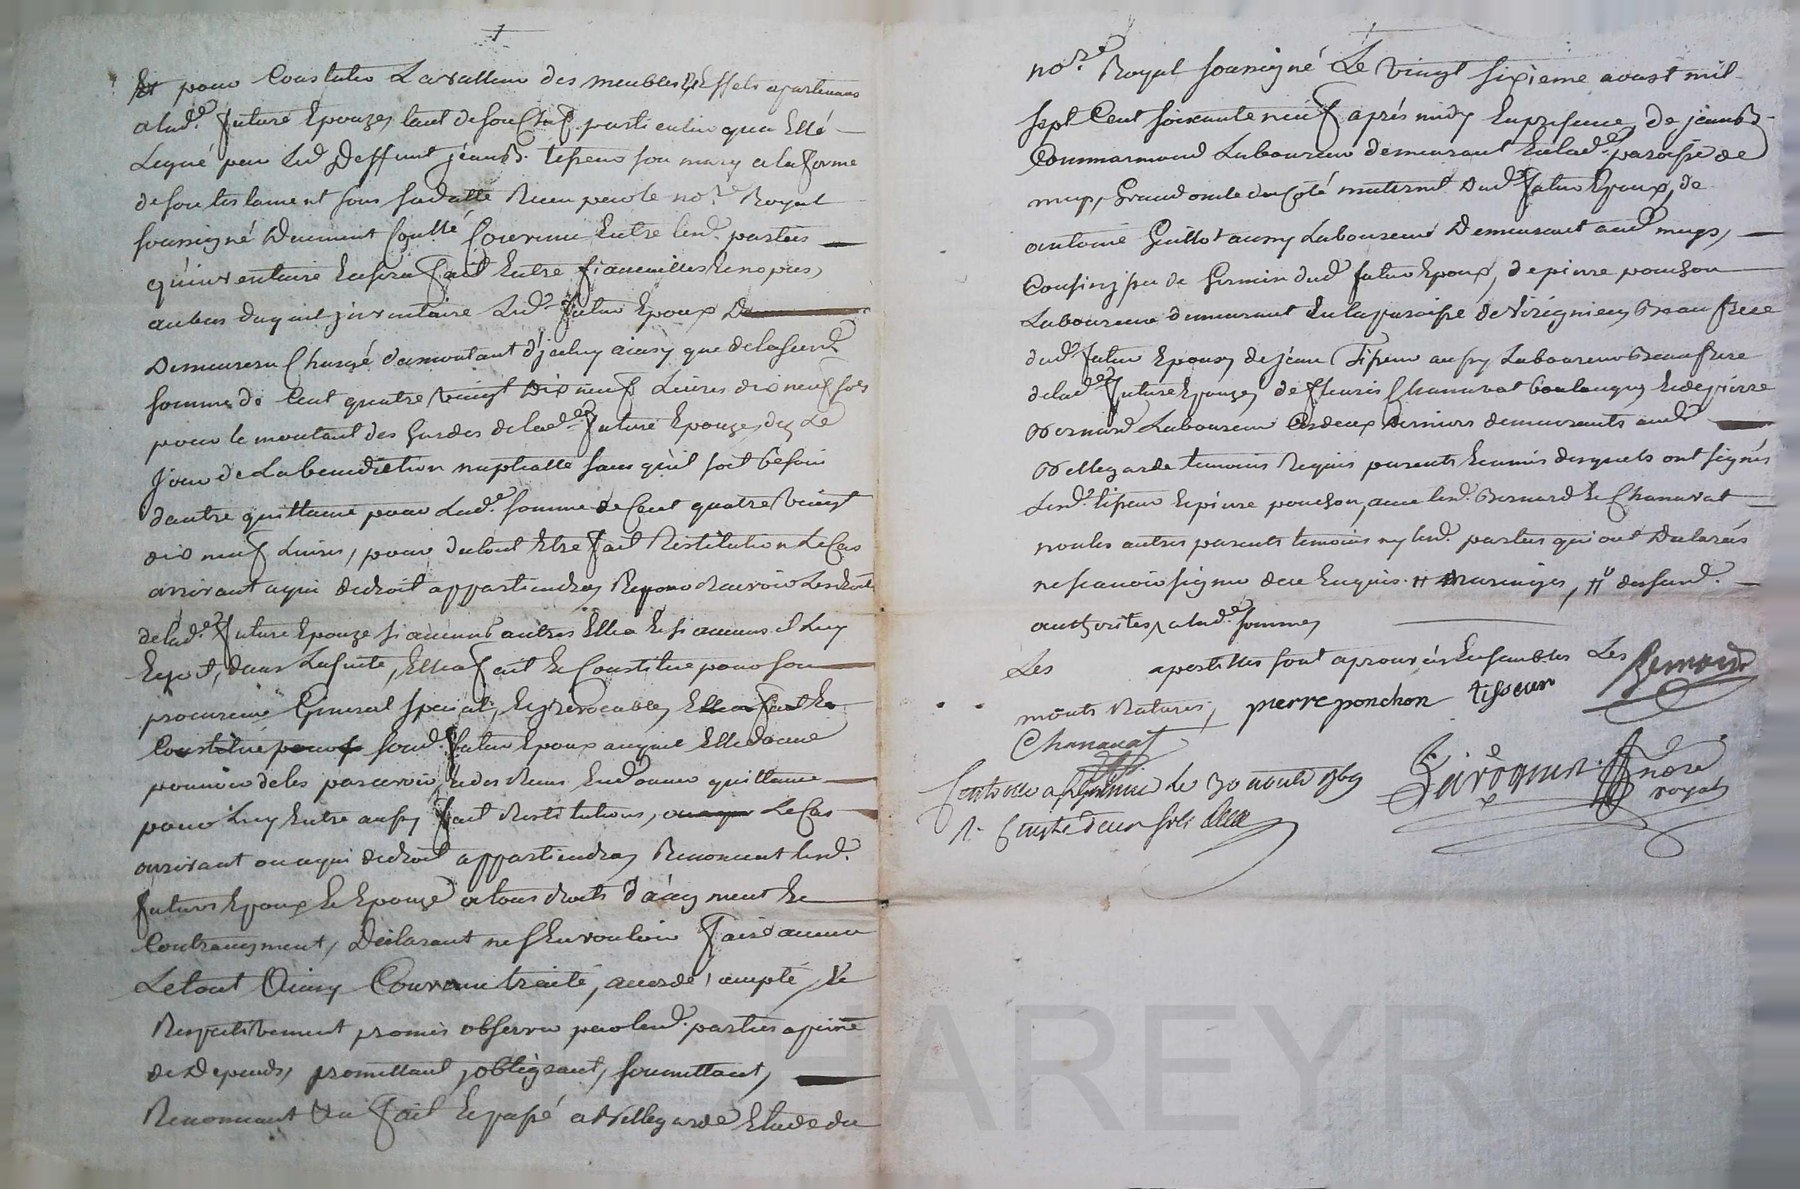 Et pour Constater La valleur des meubles & Effets apartenans
a lad.e future Epouze, tant de son Chef particulier que Ellé
Legué par Led. Deffunt jean B. tisseur son mary a la forme
de son testament sous sa datte Receu par le no.re Royal
soussigné Duement Conv.enu Entre lesd. parties
qu'inventaire En sera fait Entre
au bas duquel jnventaire Led. futur Epoux
Demeurera Chargé du montant d'jceluy ainsy que de la susd.
somme de Cent quatre vingt Dix neuf Livres dix neuf sols
pour le montant des hardes de lad.e future Epouze, dez Le
Jour de La benediction nuptialle sans qu'il soit besoin
d'autre quittance pour Lad.e somme de Cent quatre vingt
dix neuf Livres, pour du tout Etre fait Restitution Le Cas
arrivant a qui de droit appartiendra, Recevoir Les droits
de lad.e future Epouze si aucuns autres Elle a & si aucuns il Luy
Echoit, dans La suitte, Elle a fait & Constitué pour son
procureur General special, & jrrevocable, Elle a fait &
Constitué pour sond. futur Epoux auquel Elle donne
pouvoir de les percevoir, & des Reus En donner quittance
pour Luy Entre aussy fait Restitution, Le Cas
arrivant ou a qui de droit appartiendra, Renoncent lesd.
futurs Epoux & Epouze a tous droits d'augment &
Contraugment, Declarant ne s'En vouloir faire aucun
Le tout Ainsy Convenu traité, acordé, acepté, &
Respectivement promis observer par lesd. parties a peine
de Depends, promettant, obligeant, soumettant,
Renonçant &a fait & passé a Bellegarde Etude du
no.re Royal soussigné Le vingt sixieme aoust mil
sept Cent soixante neuf après midy En presence, de jean B.
Commarmond Laboureur demeurant En lad.e paroisse de
mays Grand oncle du Côté maternel dud. futur Epoux, de
antoine Guillot aussy Laboureur Demeurant aud. mays,
Cousin jssu de Germain dud. futur Epoux, de pierre ponchon
Laboureur demeurant En la paroisse de Virignieu Beau frere
dud. futur Epoux, de jean Tisseur aussy Laboureur Beau frere
de lad.e future Epouze, de fleuris Chanavat boulanger, & de pierre
Bernard Laboureur Ces deux derniers demeurants aud.
Bellegarde temoins Requis parents & amis desquels ont signés
Lesd. tisseur & pierre ponchon, avec lesd. Bernard & Chanavat
non les autres parents temoins ny lesd. parties qui ont Declarés
ne scavoir signer de ce Enquis. # # de sond.
authorités, a lad.e somme,
Les apostilles sont aprouvées Ensembles Les
môuts Raturés, pierre ponchon tisseur Bernard
Chanavat
Controllé a le 30 aoust 1769
R. sols nore
royal